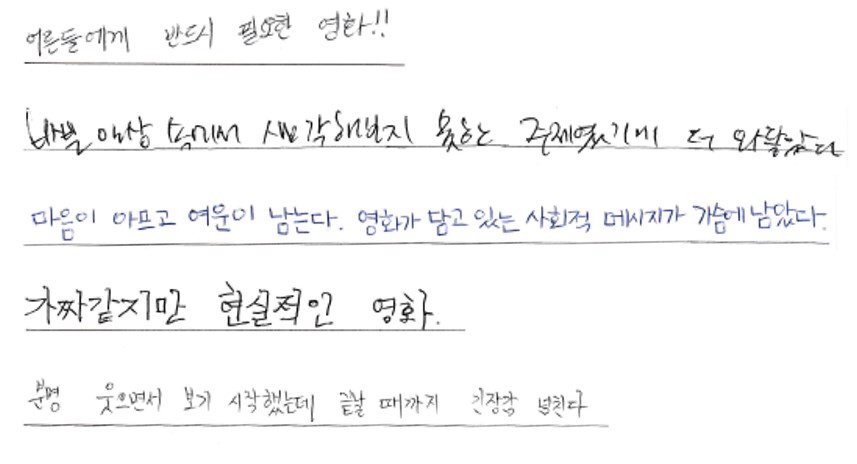 어른들에게 반드시 필요한 영화!!
바쁜 일상 속에서 생각해보지 못하는 주제였기에 더 와닿았다
마음이 아프고 여운이 남는다. 영화가 담고 있는 사회적 메시지가 가슴에 남았다.
가짜같지만 현실적인 영화.
분명 웃으면서 보기 시작했는데 끝날 때까지 긴장감 넘친다